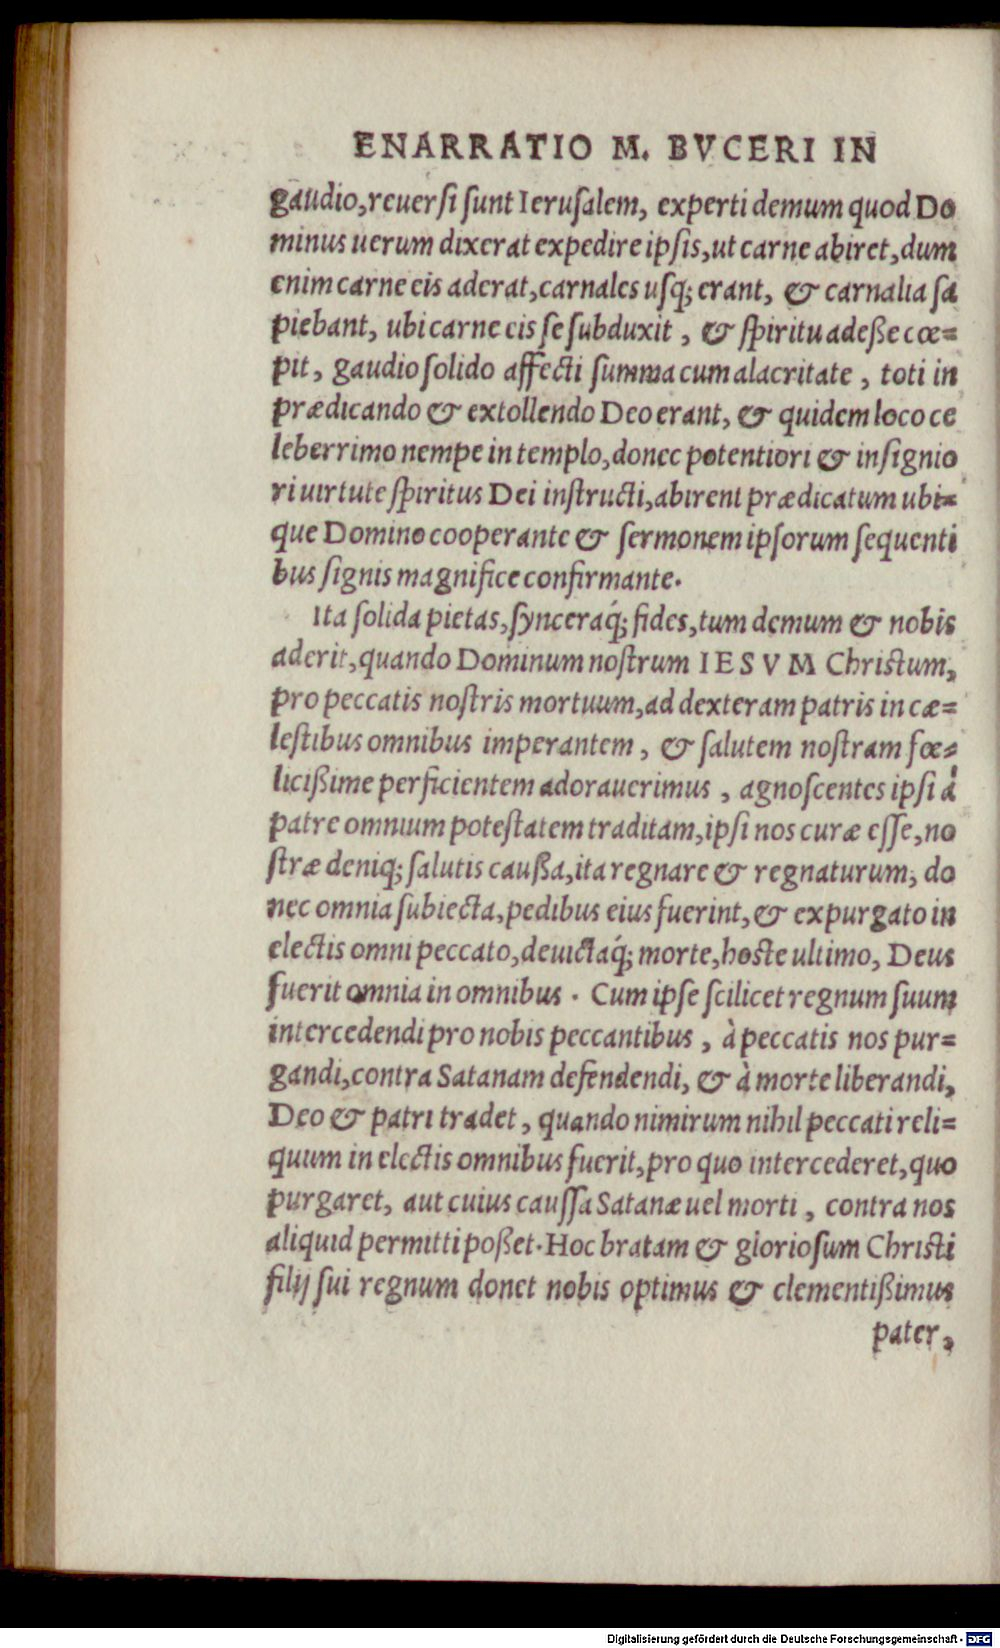 ENARRATIO M. BVCERI IN
gaudio,reuersi sunt Ierusalem, experti demum quod Do
minus uerum dixerat expedire ipsis,ut carne abiret,dum
enim carne eis aderat,carnales usq; erant, & carnalia sa
piebant, ubi carne eis se subduxit , & spiritu adeße cœ=
pit, gaudio solido affecti summa cum alacritate , toti in
prædicando & extollendo Deo erant, & quidem loco ce
leberrimo nempe in templo,donec potentiori & insignio
ri uirtute spiritus Dei instructi,abirent prædicatum ubi=
que Domino cooperante & sermonem ipsorum sequenti
bus signis magnifice confirmante.
Ita solida pietas, synceraq́; fides,tum demum & nobis
aderit,quando Dominum nostrum IESVM Christum,
pro peccatis nostris mortuum,ad dexteram patris in cæ=
lestibus omnibus imperantem , & salutem nostram fœ=
licißime perficientem adorauerimus , agnoscentes ipsi à
patre omnium potestatem traditam,ipsi nos curæ esse,no
stræ deniq; salutis caußa,ita regnare & regnaturum, do
nec omnia subiecta,pedibus eius fuerint,& expurgato in
electis omni peccato,deuictaq́; morte,hoste ultimo, Deus
fuerit omnia in omnibus . Cum ipse scilicet regnum suum
intercedendi pro nobis peccantibus , à peccatis nos pur=
gandi,contra Satanam defendendi, & à morte liberandi,
Deo & patri tradet , quando nimirum nihil peccati reli=
quum in electis omnibus fuerit,pro quo intercederet,quo
purgaret, aut cuius caussa Satanæ uel morti , contra nos
aliquid permitti poßet. Hoc bratam & gloriosum Christi
filij sui regnum donet nobis optimus & clementißimus
pater,
Digitalisierung gefördert durch die Deutsche Forschungsgemeinschaft - DFG